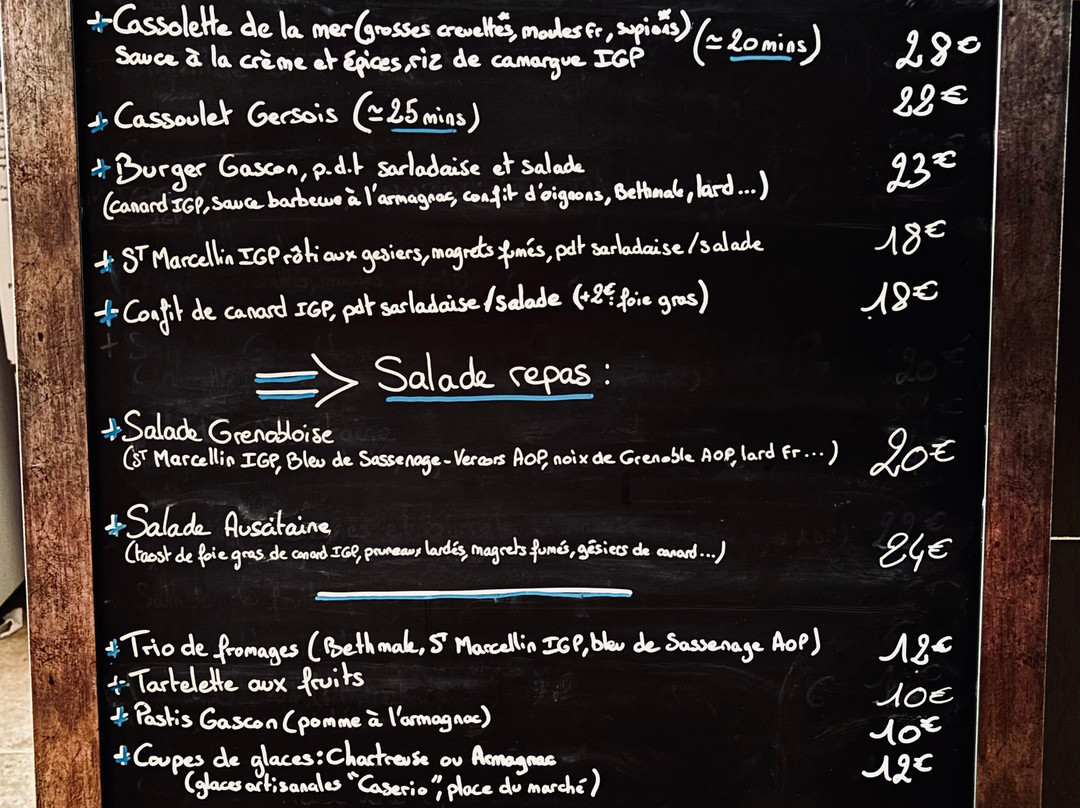 + Cassolette de la mer (grosses crevettes*, moules fr, supions*) (≃ 20 mins) 28€
sauce à la crème et épices, riz de camargue IGP
+ Cassoulet Gersois (≃ 25 mins) 22€
+ Burger Gascon, p.d.t sarladaise et salade 23€
(canard IGP, sauce barbecue à l'armagnac, confit d'oignons, Bethmale, lard...)
+ ST Marcellin IGP rôti aux gesiers, magrets fumés, pdt sarladaise/salade 18€
+ Confit de canard IGP, pdt sarladaise/salade (+2€ foie gras) 18€
=> Salade repas :
+ Salade Grenobloise
(ST Marcellin IGP, Bleu de Sassenage-Vercors AOP, noix de Grenoble AOP, lard fr...) 20€
+ Salade Auscitaine
(toast de foie gras de canard IGP, pruneaux lardés, magrets fumés, gésiers de canard...) 24€
+ Trio de fromages (Bethmale, ST Marcellin IGP, bleu de Sassenage AOP) 12€
+ Tartelette aux fruits 10€
+ Pastis Gascon (pomme à l'armagnac) 10€
+ Coupes de glaces : Chartreuse ou Armagnac 12€
(glaces artisanales "Caserio", place du marché)